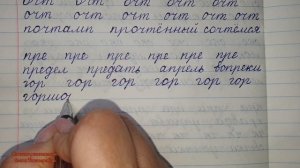 очт очт очт очт очт очт
очт очт очт очт очт очт
почтамп прочтённый сочтемся
пре пре пре пре пре пре
предел предать апрель вопреки
гор гор гор гор гор гор
горшо